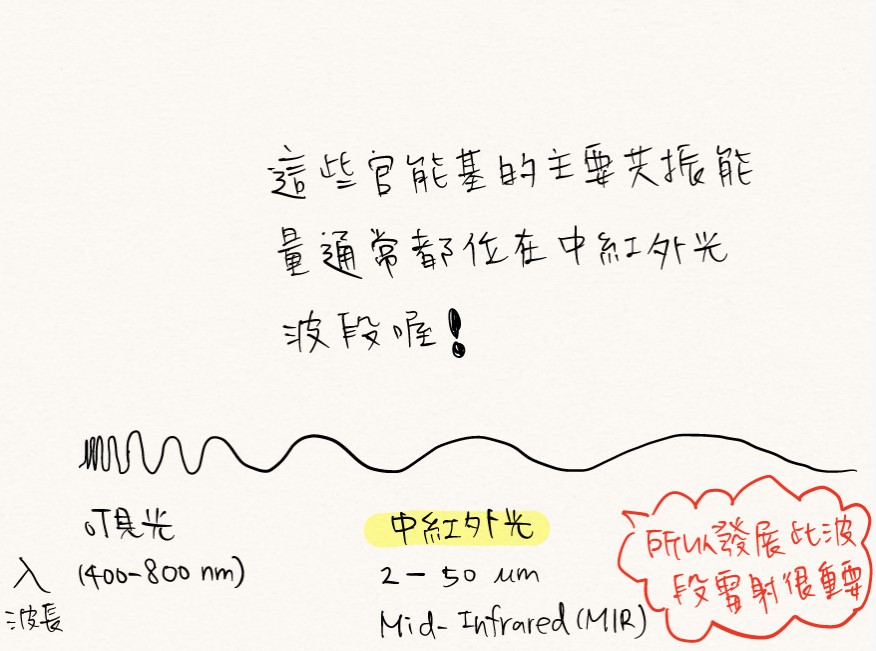 這些官能基的主要共振能
量通常都位在中紅外光
波段喔!
可見光
中紅外光
所以發展此波
段雷射很重要
λ
(400-800 nm)
2 - 50 um
波長
Mid-Infrared (MIR)